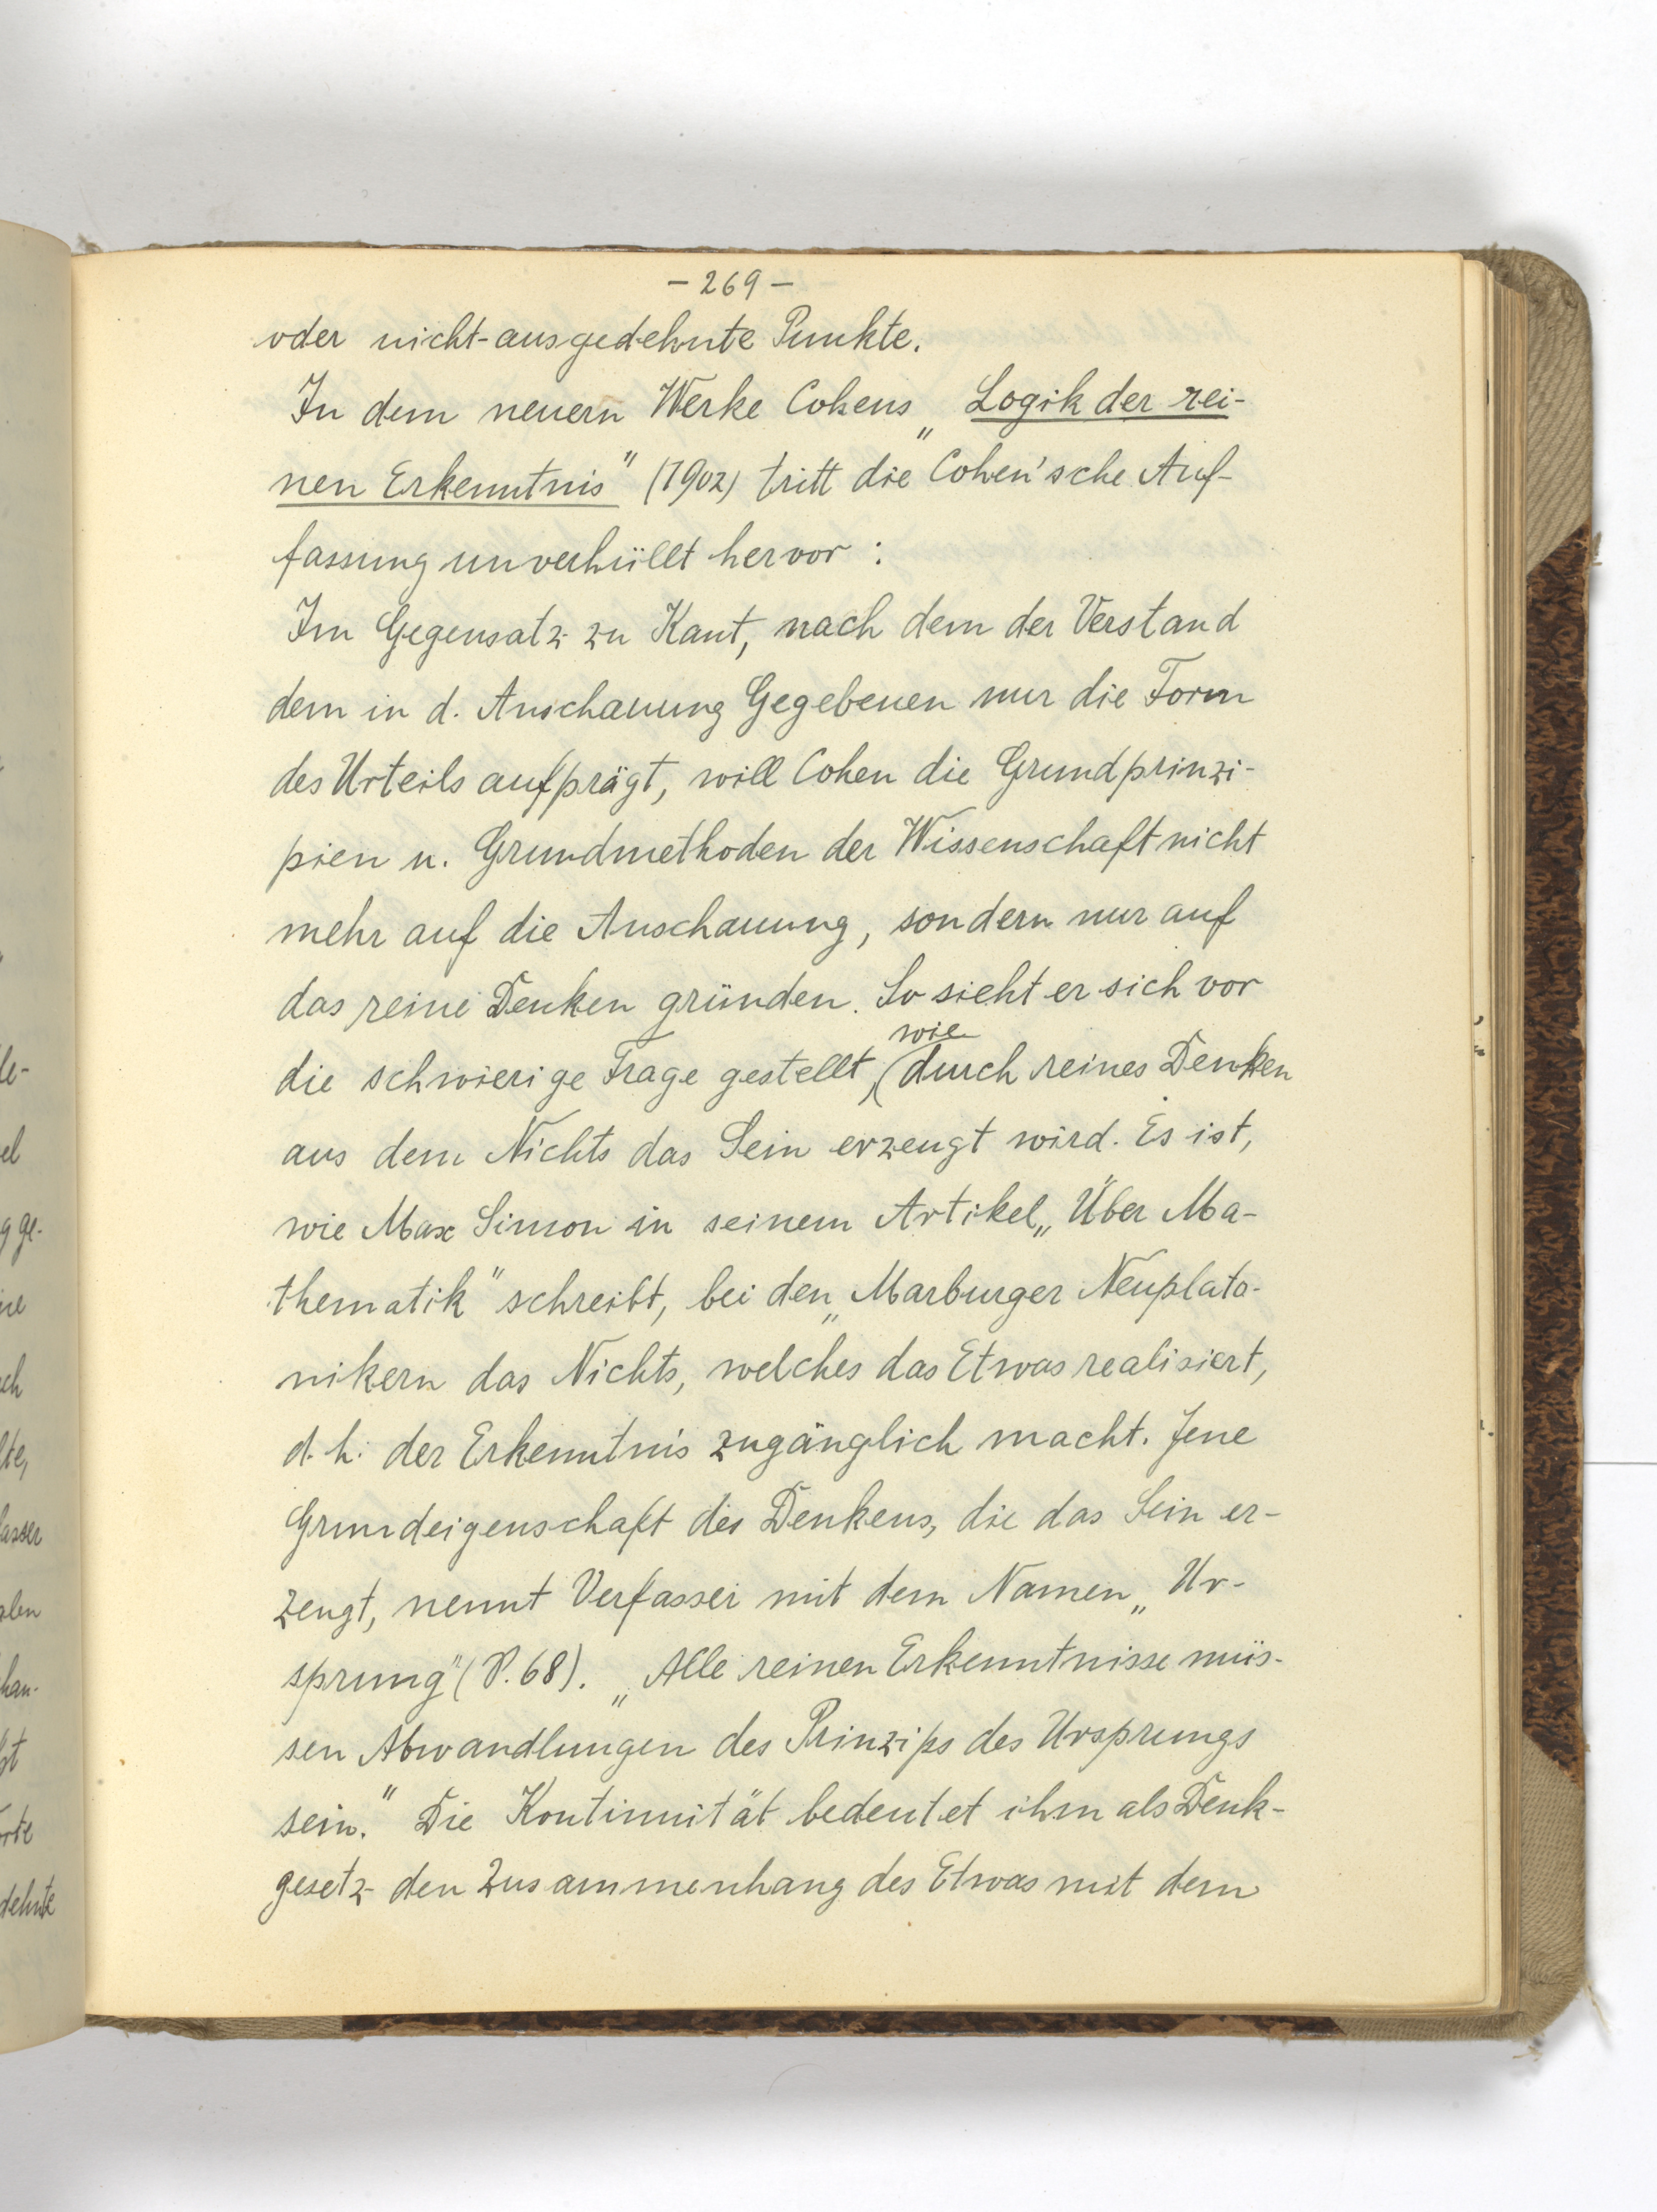 - 269 -
oder nicht-ausgedehnte Punkte.
In dem neuern Werke Cohens „Logik der rei-
nen Erkenntnis" (1902) tritt die Cohen'sche Auf-
fassung unverhüllt hervor :
Im Gegensatz zu Kant, nach dem der Verstand
dem in d. Anschauung Gegebenen nur die Form
des Urteils aufprägt, will Cohen die Grundprinzi-
pien u. Grundmethoden der Wissenschaft nicht
mehr auf die Anschauung, sondern nur auf
das reine Denken gründen. So sieht er sich vor
die schwierige Frage gestellt, wie durch reines Denken
aus dem Nichts das Sein erzeugt wird. Es ist,
wie Max Simon in seinem Artikel „Über Ma-
thematik" schreibt, bei den „Marburger Neuplato-
nikern das Nichts, welches das Etwas realisiert,
d. h. der Erkenntnis zugänglich macht. Jene
Grundeigenschaft des Denkens, die das Sein er-
zeugt, nennt Verfasser mit dem Namen „Ur-
sprung" (P. 68). „Alle reinen Erkenntnisse müs-
sen Abwandlungen des Prinzips des Ursprungs
sein." Die Kontinuität bedeutet ihm als Denk-
gesetz den Zusammenhang des Etwas mit dem